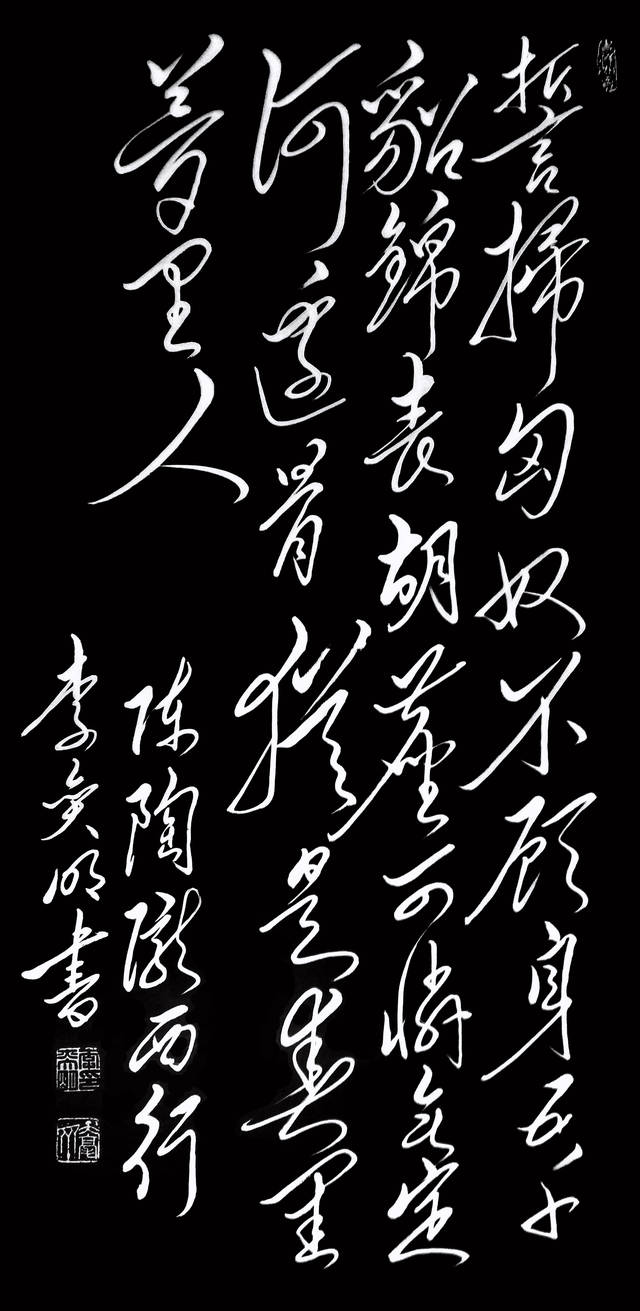 誓掃匈奴不顧身五千
貂錦喪胡塵可憐無定
河邊骨猶是春閨
夢里人
陳陶隴西行
李明書